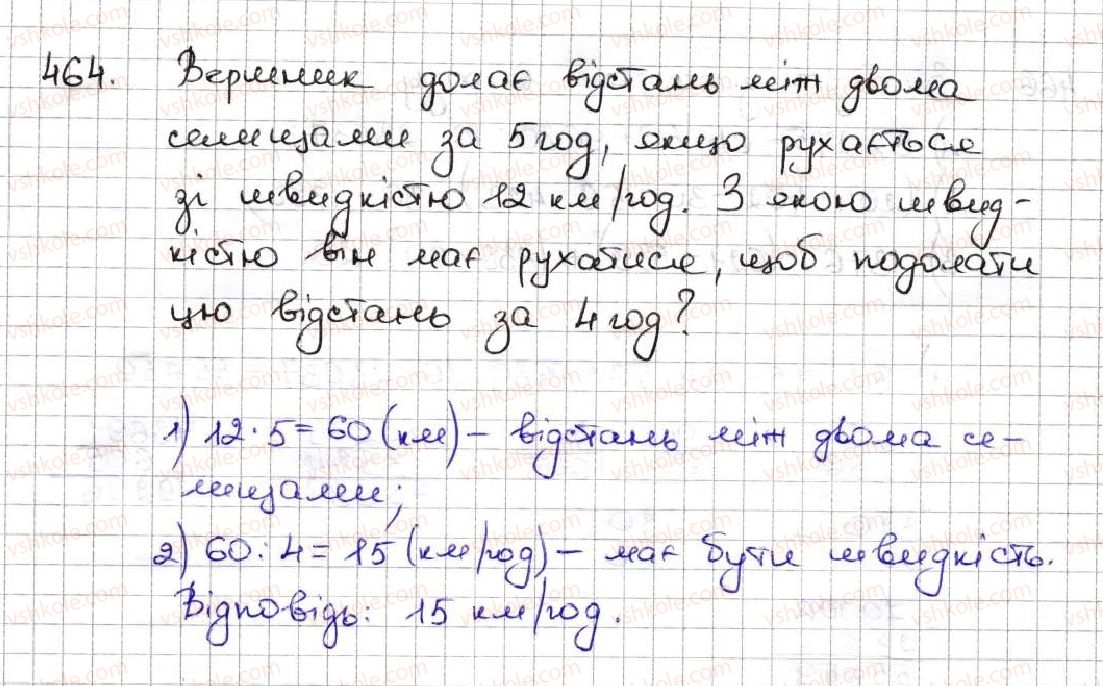 464. Вершник долає відстань між двома
селищами за 5 год, якщо рухається
зі швидкістю 12 км/год. З якою швид-
кістю він має рухатися, щоб подолати
цю відстань за 4 год?
1) 12·5=60 (км) – відстань між двома се-
лищами;
2) 60:4=15 (км/год) – має бути швидкість.
Відповідь: 15 км/год.